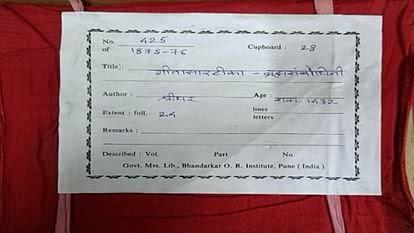 No. 425 Cupboard : 28
of 1875-76
Title) : गीतासारटीका - ब्रह्मसंबोधिनी
Author : श्रीधर Age : शक 1432
Extent : foll. 24 lines
letters
Remarks :
Described : Vol. Part No.
Govt. Mss. Lib., Bhandarkar O. R. Institute, Pune ( India )